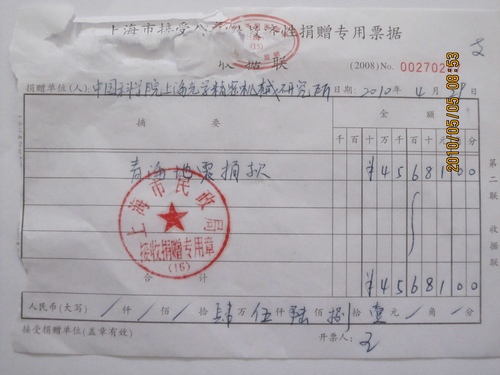 上海市接受 性捐赠专用票据
(15)
收据联
(2008)No. 002702
捐赠单位(人):中国科学院上海光学精密机械研究所 日期:2010年4月 日
摘要 金额
千百十万千百十元角分
青海地震捐款 ¥4568100
上海市民政局
接收捐赠专用章
(15)
合计 ¥4568100
人民币(大写) 仟 佰 拾肆万伍仟陆佰捌拾壹元 角 分
接受捐赠单位(盖章有效) 开票人:王
第二联 收据联
2010/05/05 08:53